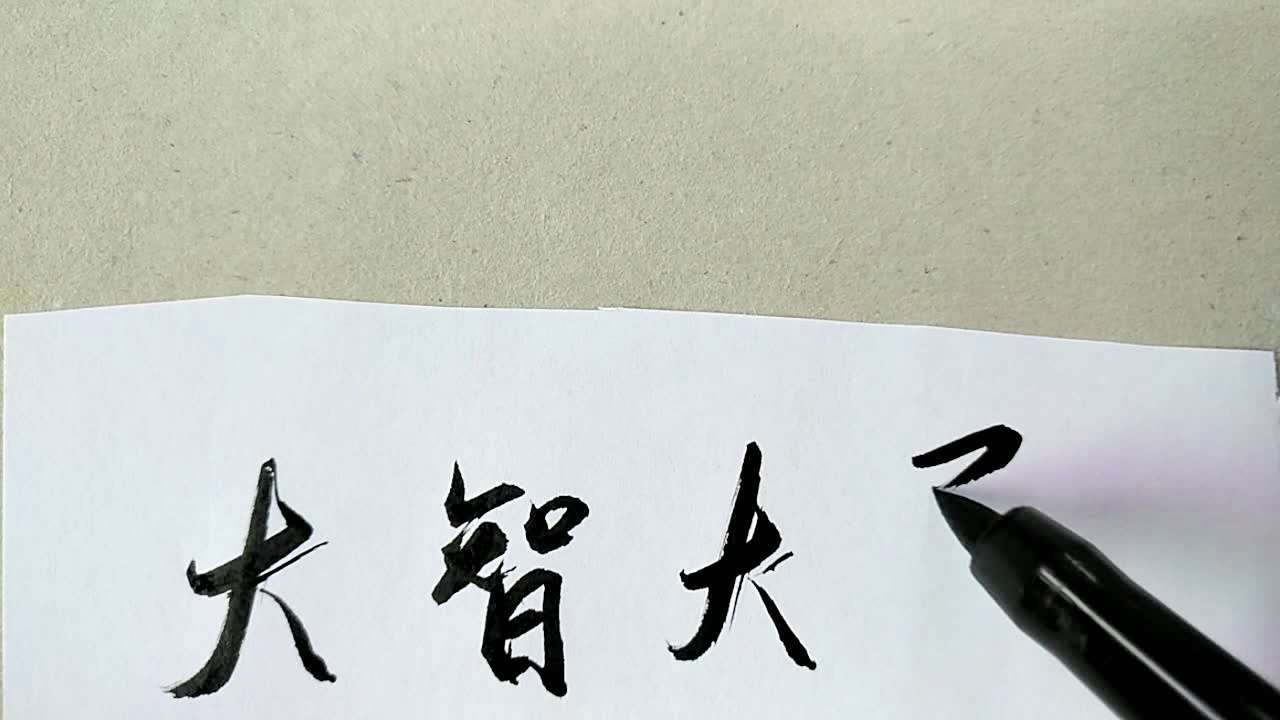 大智大